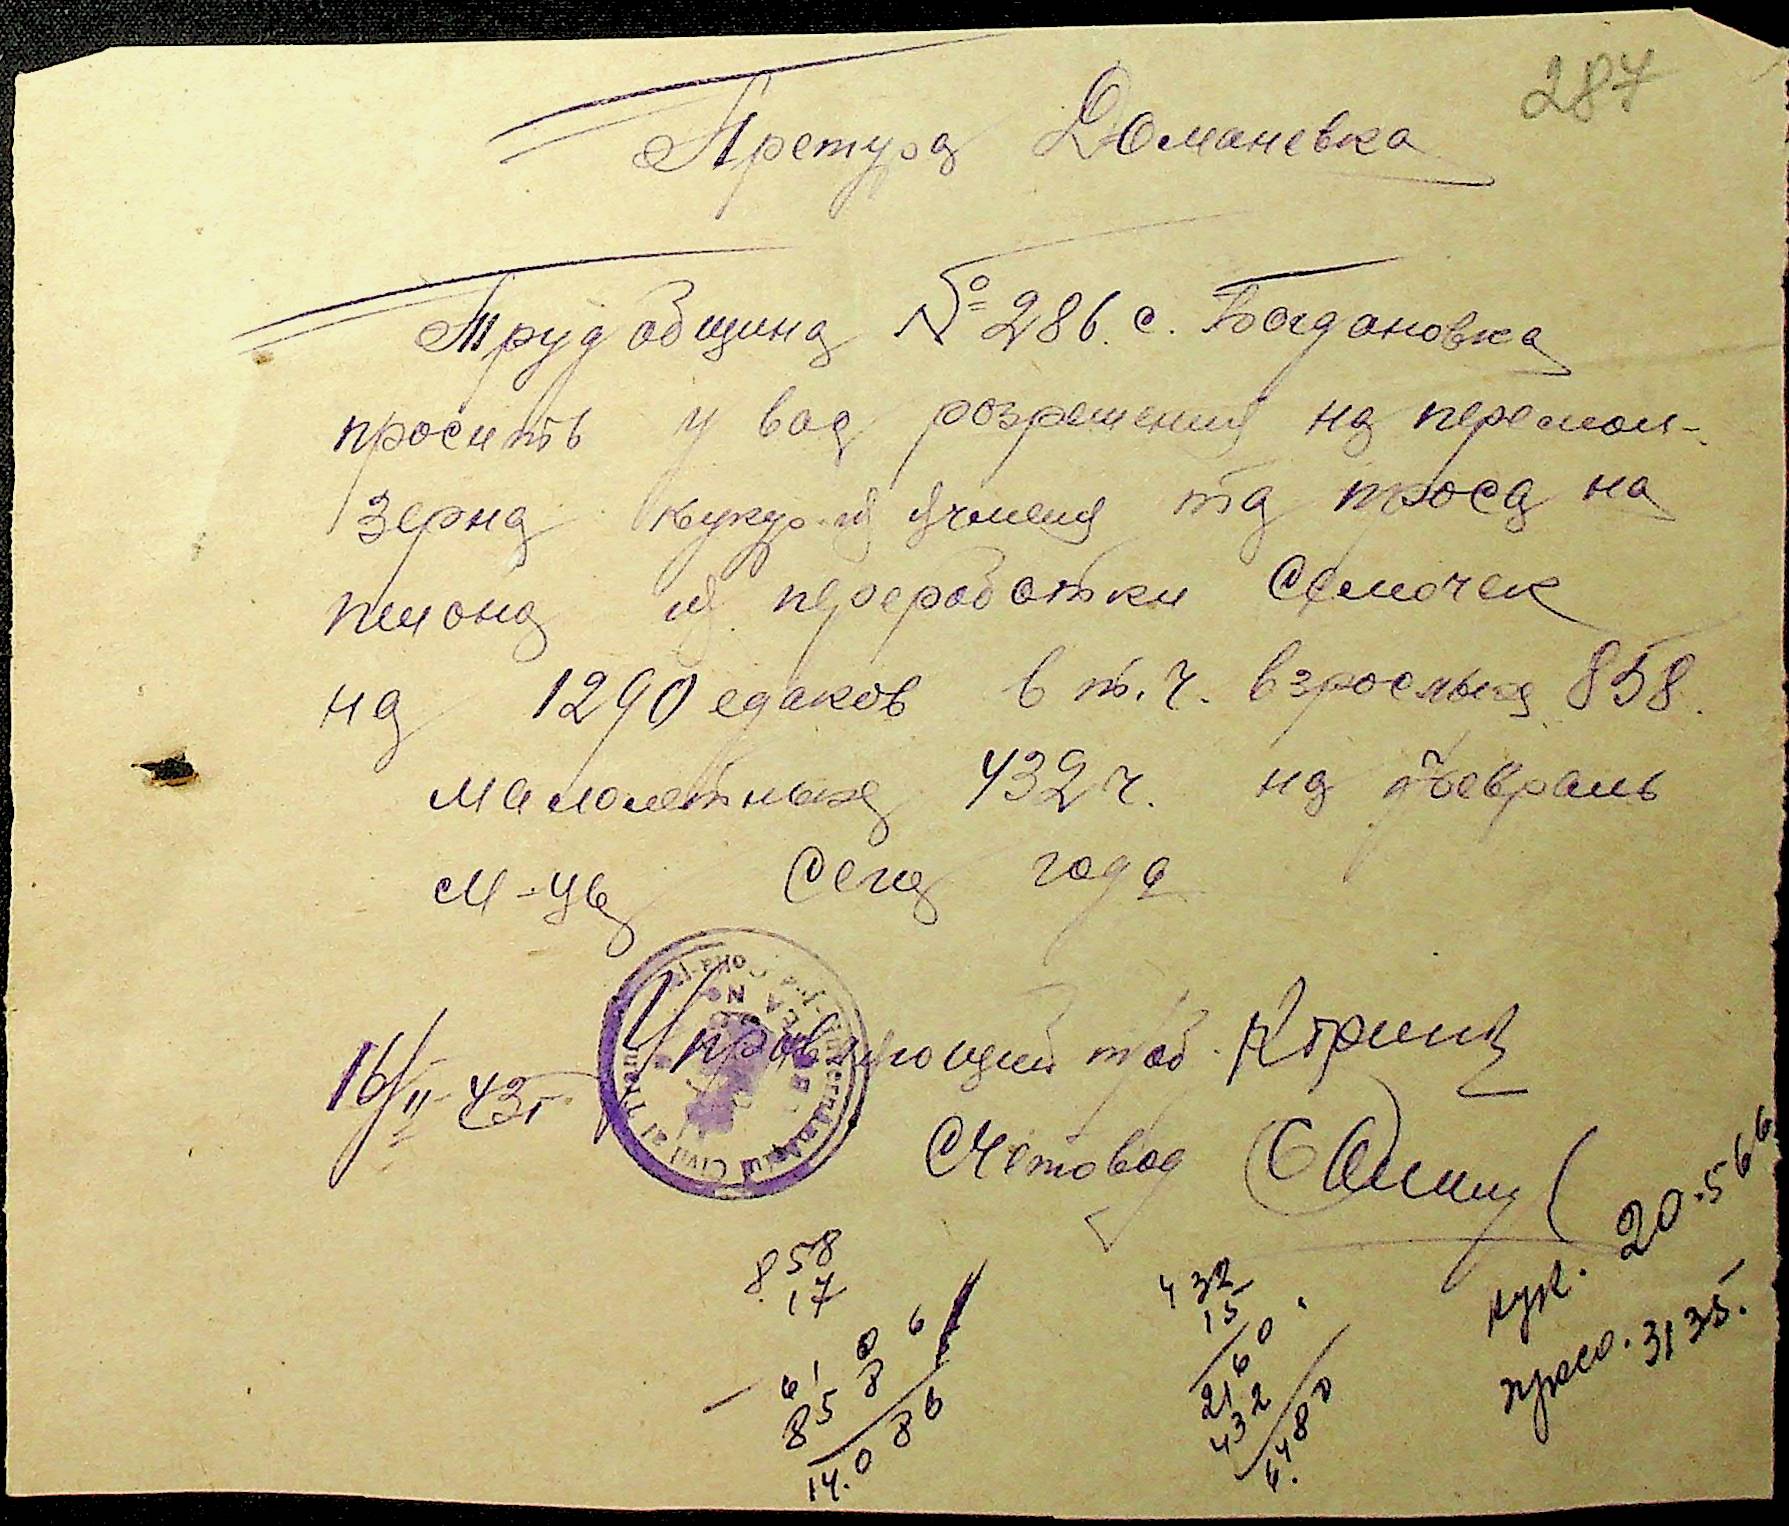 287
Претура Доманевка
Трудобщина № 286 с. Богдановка
просить у вас розрешения на перемол-
зерна кукур. и ячменя та проса на
пшона и переработки Семочек
на 1290 едаков в т.ч. взрослых 858.
малолетных 432 ч. на февраль
м-ць сего года
16/II-43г. Управляющий тоб.
Счетовод
858
17
6006
858
14.086
432
15
2160
432
6.480
кук. 20.566
просо. 3135.